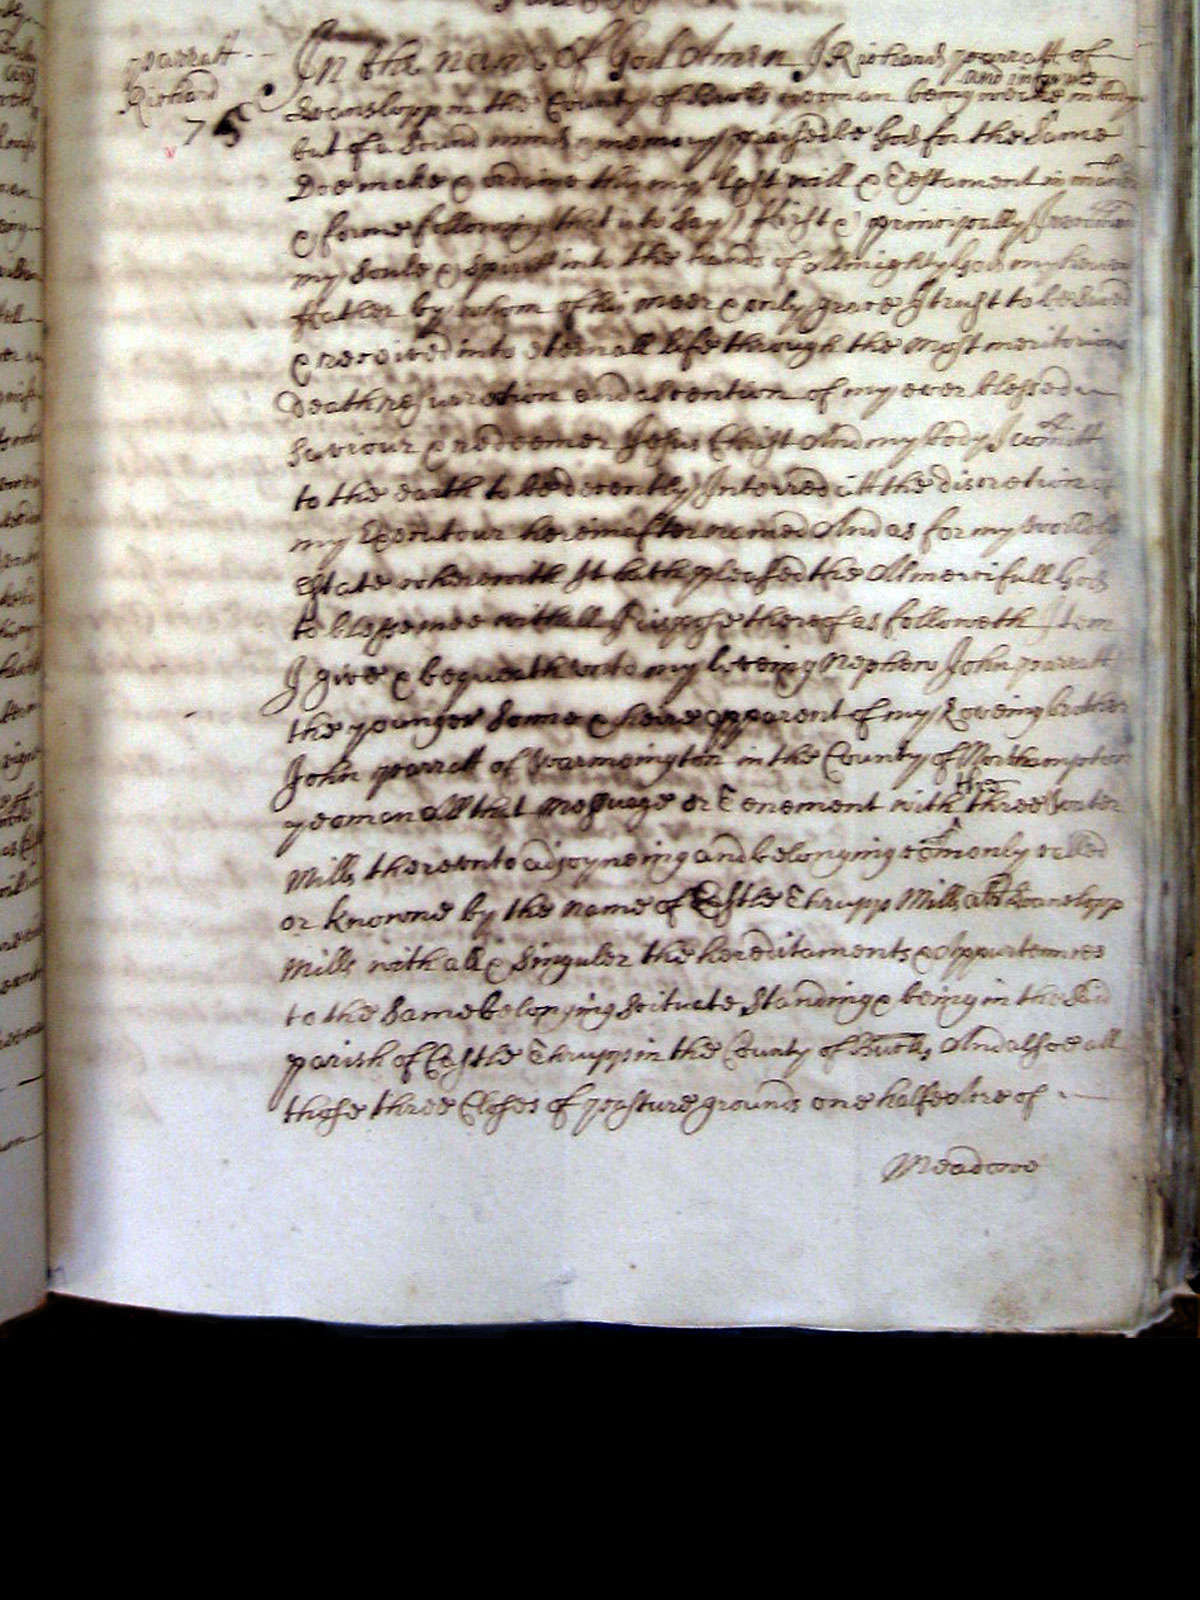 Parratt
Richard
75
In the name of God Amen I Richard Parratt of
Hanslopp in the County of Bucks yeoman being weake and infirme in body
but of a Sound mind & memory praysed be God for the Same
Doe make & ordaine this my last will & Testament in manner
& forme following (that is to Say) First & principally I
my Soule & Spirit into the hands of Allmighty God my heavenly
Father by whom of his meer & only grace I trust to be Saved
& received into eternall life through the most meritorious
death resurrection and ascention of my ever blessed
Saviour & redeemer Jesus Christ And my body I comitt
to the earth to be decently Interred att the discretion of
my Executour hereinafter named And as for my worldly
Estate wherewith It hath pleased the Almercifull God
to blesse mee withall I dispose thereof as followeth Item
I give & bequeath unto my loveing Nephew John Parratt
the younger Sonne & heire apparent of my Loveing brother
John Parratt of Warmington in the County of Northampton
yeoman All that Messuage or Tenement with the three water
Mills thereunto adjoyneing and belonging comonly called
or knowne by the name of Castle Thrupp Mills Hanslopp
Mills with all & Singuler the hereditaments & Appurtennces
to the Same belonging Scituate Standing & being in the Said
parish of Castle Thrupp in the County of Bucks And alsoe all
those three Closes of pasture grounds one halfe Acre of
Meadowe